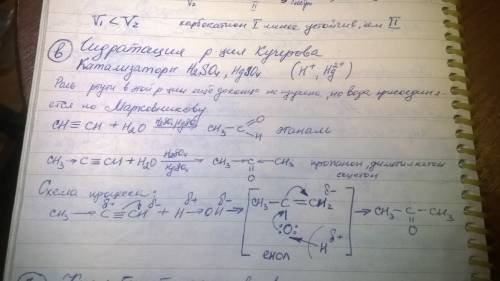 V₁ < V₂ карбокатион I менее устойчив, чем II
в) Гидратация р-ция Кучерова
Катализаторы H₂SO₄, HgSO₄ (H⁺, Hg²⁺)
Роль ртути в этой р-ции ещё до конца не изучена, но вода присоединя-
ется по Марковникову
CH≡CH + H₂O H₂SO₄, HgSO₄ → CH₃-C O H этаналь
CH₃→C≡CH + H₂O H₂SO₄ HgSO₄ → CH₃-C-CH₃ O пропанон, диметилкетон
ацетон
Схема процесса:
CH₃→C^δ+≡CH^δ- + H^δ+→OH^δ- → [CH₃-C=CH₂^δ- :O: H^δ+] → CH₃-C-CH₃ O
енол